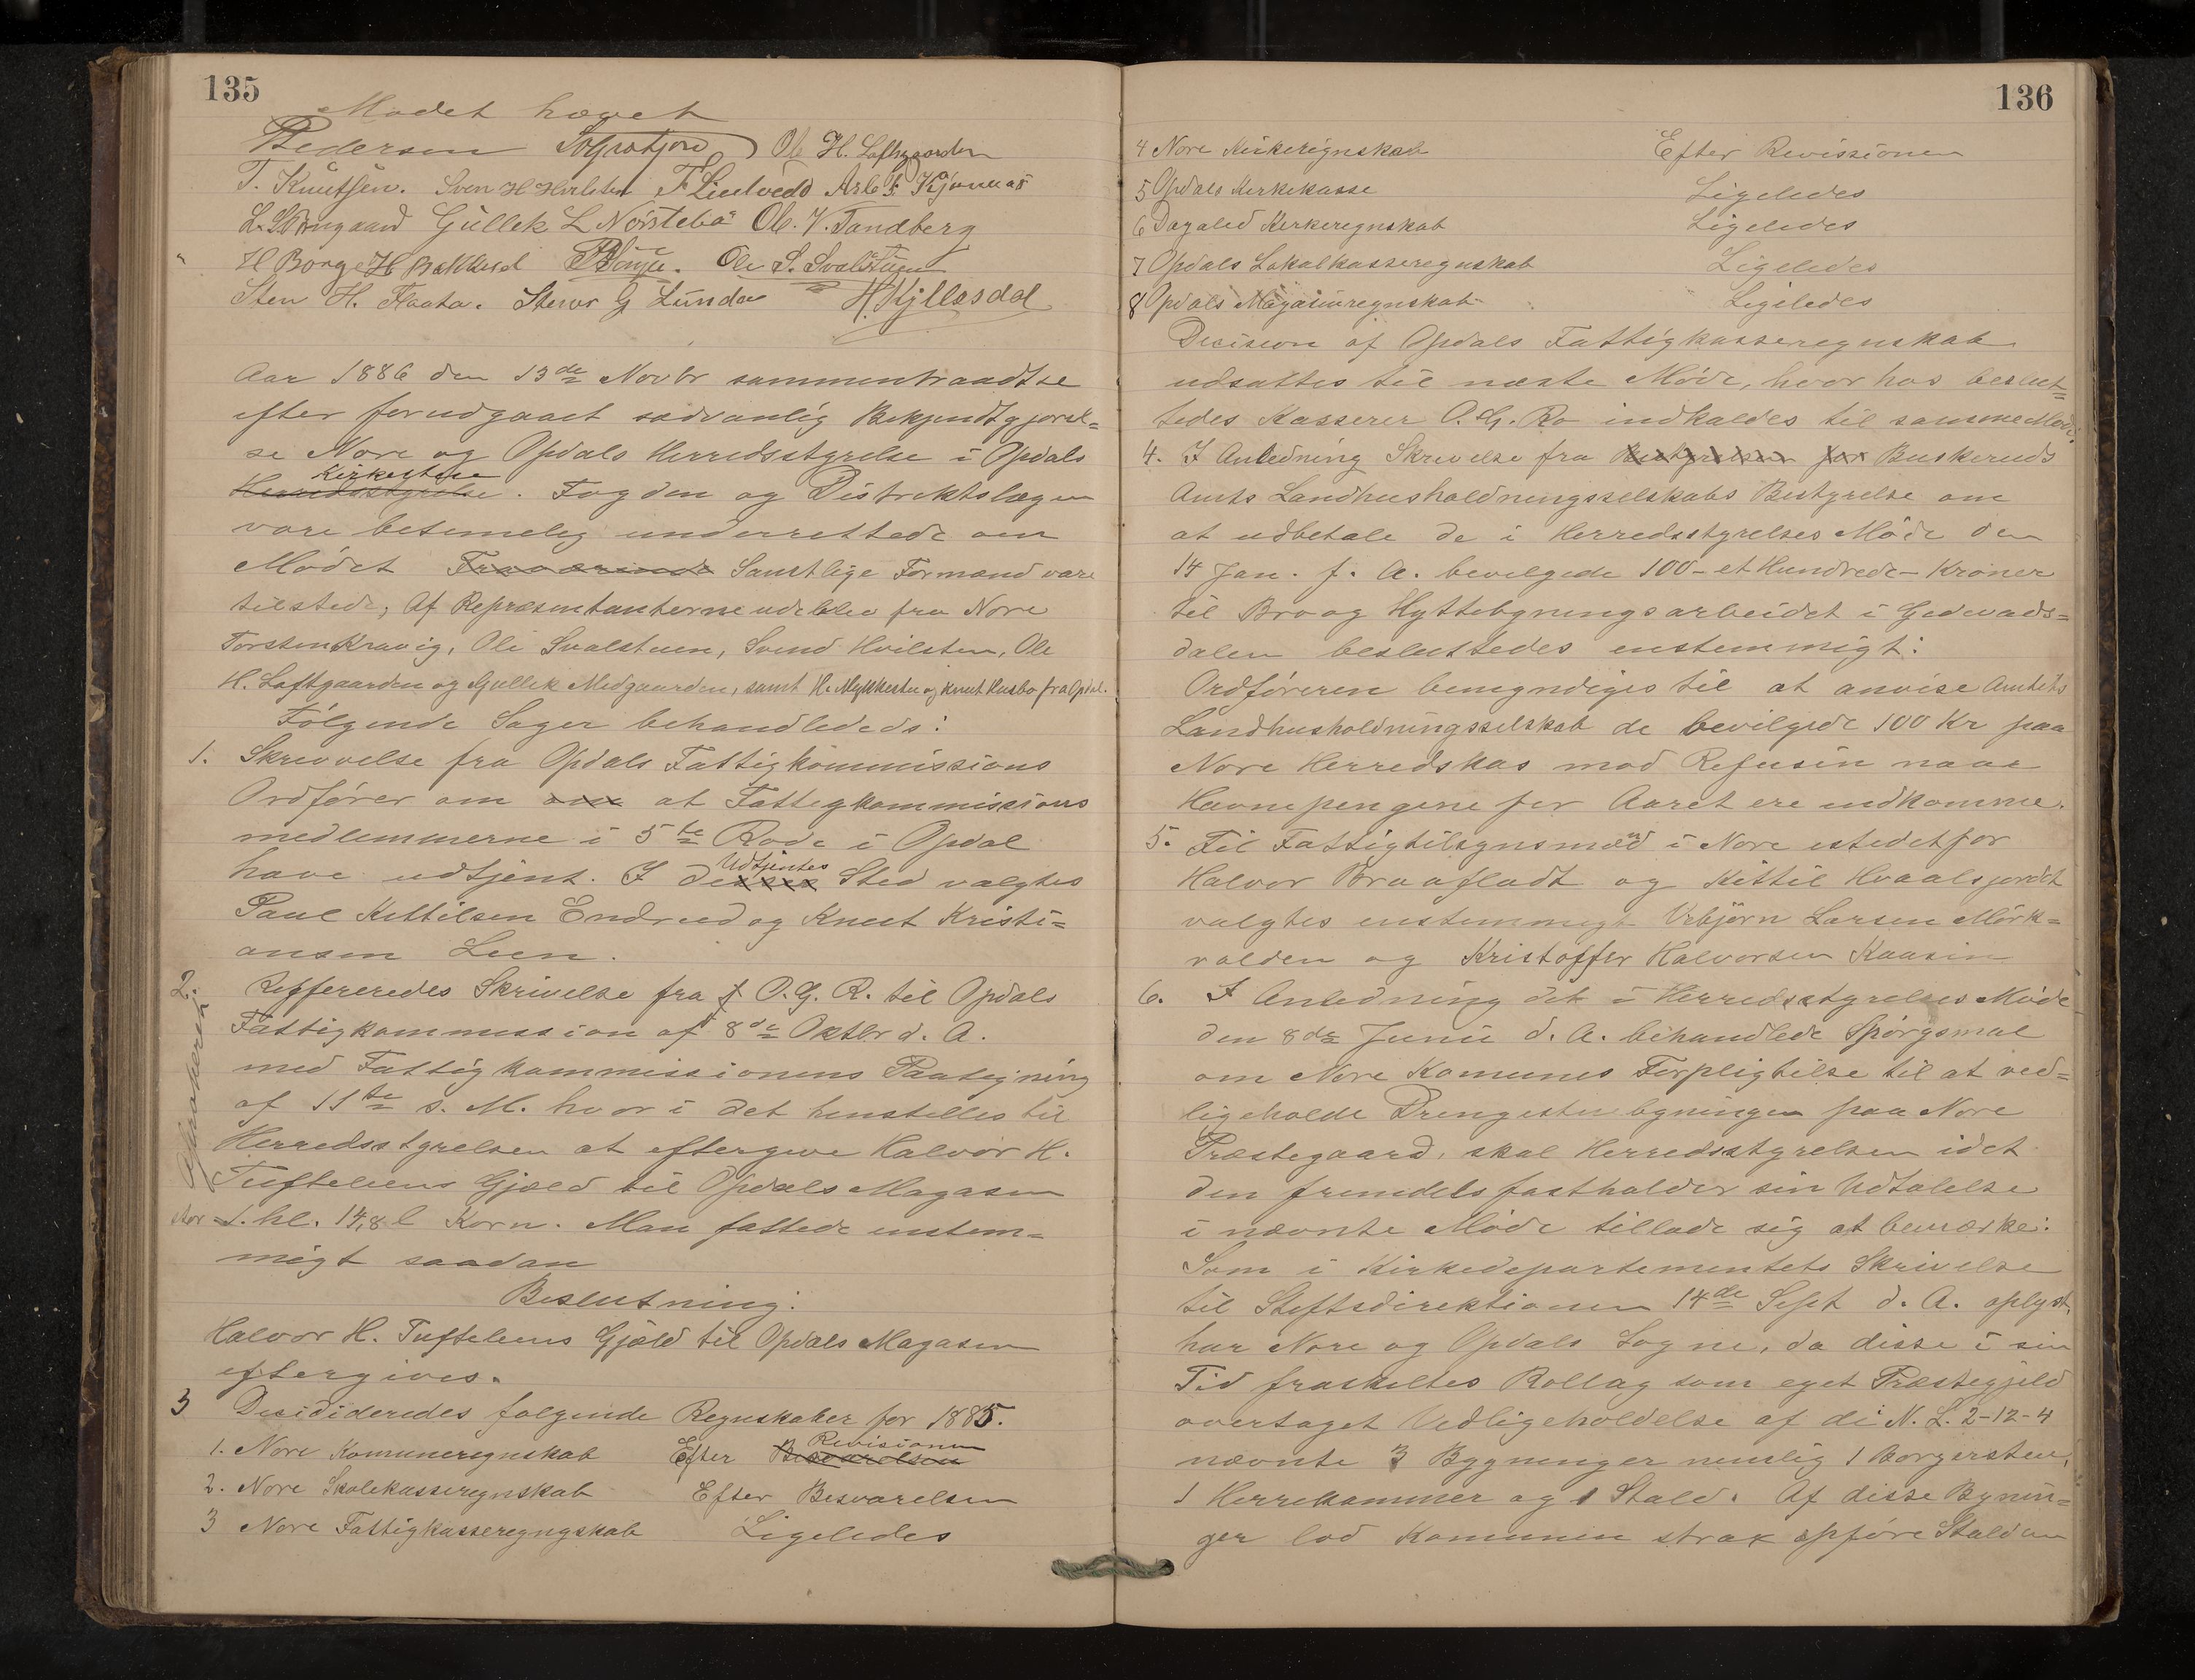 135
Mødet hævet
Pedersen Ole H. Loftsgaarden
T. Knutsen. Sven H Hvilsten F Lindvedt
Gullek L Nørstebø Ole. V. Tandberg
H Borge H Bakkerud Ole S. Svalstuen
Sten H. Flaata. Stener G Lunde H. Kjillesdal
Aar 1886 den 13de Novbr sammentraadtse
efter forudgaaet sedvanlig Bekjendtgjørel=
se Nore og Opdals Herredsstyrelse i Opdals
Kirkestue
Herredsstyrelse. Fogden og Distriktslægen
vare betimelig underrettede om
Mødet Fraværende Samtlige Formænd vare
tilstede, Af Repræsentanterne udeblev fra Nore
Torsten Kravig, Ole Svalstuen, Svend Hvilsten, Ole
H. Loftgaarden og Gullik Midgaarden, samt H. Mykkestu og Knut Husbo fra Opdal.
Følgende Sager behandledes:
1. Skrivelse fra Opdals Fattigkommissions
Ordfører om om at Fattigkommissions
medlemmerne i 5te Rode i Opdal
Udtjentes
have udtjent. I Sted valgtes
Paul Kittilsen Endrud og Knut Kristi=
ansen Leen.
2. Reffereredes Skrivelse fra f O. G. R. til Opdals
Fattigkommission af 8de Oktbr d. A.
med Fattigkommissionens Paategning
af 11te s. M. hvori det henstilles til
Herredsstyrelsen at eftergive Halvor H.
Tufteliens Gjæld til Opdals Magasin
stor 1. hl. 14,8 l Korn. Man fattede enstem=
migt saadan
Beslutning:
Halvor H. Tufteliens Gjæld til Opdals Magasin
eftergives.
3 Desidideredes følgende Regnskaber for 1885.
Revisionen
1. Nore Komuneregnskab Efter Besvarelsen
2. Nore Skolekasseregnskab Efter Besvarelsen
3 Nore Fattigkasseregngskab Ligeledes
136
4 Nore Kirkeregnskab Efter Revissionen
5 Opdals Kirkekasse Ligeledes
6 Dagalid Kirkeregnskab Ligeledes
7 Opdals Lokalkasseregnskab Ligeledes
8 Opdals Magasinregnskab Ligeledes
Decision af Opdals Fattigkasseregnskab
udsattes til næste Møde, hvorhos beslut=
tedes Kasserer O. G. Ro indkaldes til samme Møde.
4. I Anledning Skrivelse fra Bestyrelsen for Buskeruds
Amts Landhusholdningsselskabs Bestyrelse om
at udbetale de i Herredsstyrelses Møde den
14 Jan. f. A. bevilgede 100 - et Hundrede - Kroner
til Bro og Hyttebygningsarbeidet i Gedevads=
dalen besluttedes enstemmigt:
Ordføreren bemyndiges til at anvise Amtets
Landhusholdningsselskab de bevilgede 100 Kr paa
Nore Herredskas mod Refusin naar
Havnepengene for Aaret ere indkomme.
5. Til Fattigtilsynsmænd i Nore istedetfor
Halvor Braafladt og Kittil Hvaalsjordet
valgtes enstemmigt Vebjørn Larsen Mørk=
volden og Kristoffer Halvorsen Kaasin
6. I Anledning det i Herredsstyrelses Møde
den 8de Junii d. A. behandlede Spørgsmal
om Nore Komunes Forpligtilse til at ved=
ligeholde Drengestubygningen paa Nore
Præstegaard, skal Herredsstyrelsen idet
den fremdels fastholder sin Udtalelse
i nævnte Møde tillade sig at bemærke:
Som i Kirkedepartementets Skrivelse
til Stiftsdirektionen 14de Sept d. A. oplyst,
har Nore og Opdals Sogne, da disse i sin
Tid fraskiltes Rollag som eget Præstegjeld
overtaget Vedligeholdelse af de i N. L. 2-12-4
nævnte 3 Bygninger nemlig 1 Borgerstue,
1 Herrekammer og 1 Stald. Af disse Bynin=
ger lod Komunen strax opføre Stalden